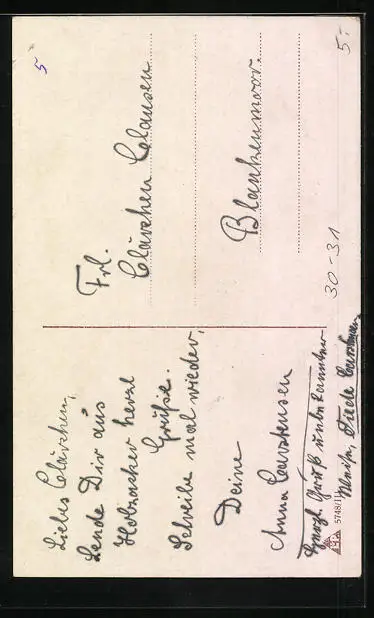 Liebes Clärchen,
Sende Dir aus
Holzacker herzl
Grüße.
Schreibe mal wieder,
Deine
Anna Carstensen
Herzl. Gruß unbekannter
Weise,
5748/1
Frl.
Clärchen Clausen
Blankenmoor.
30-31
5
5.-